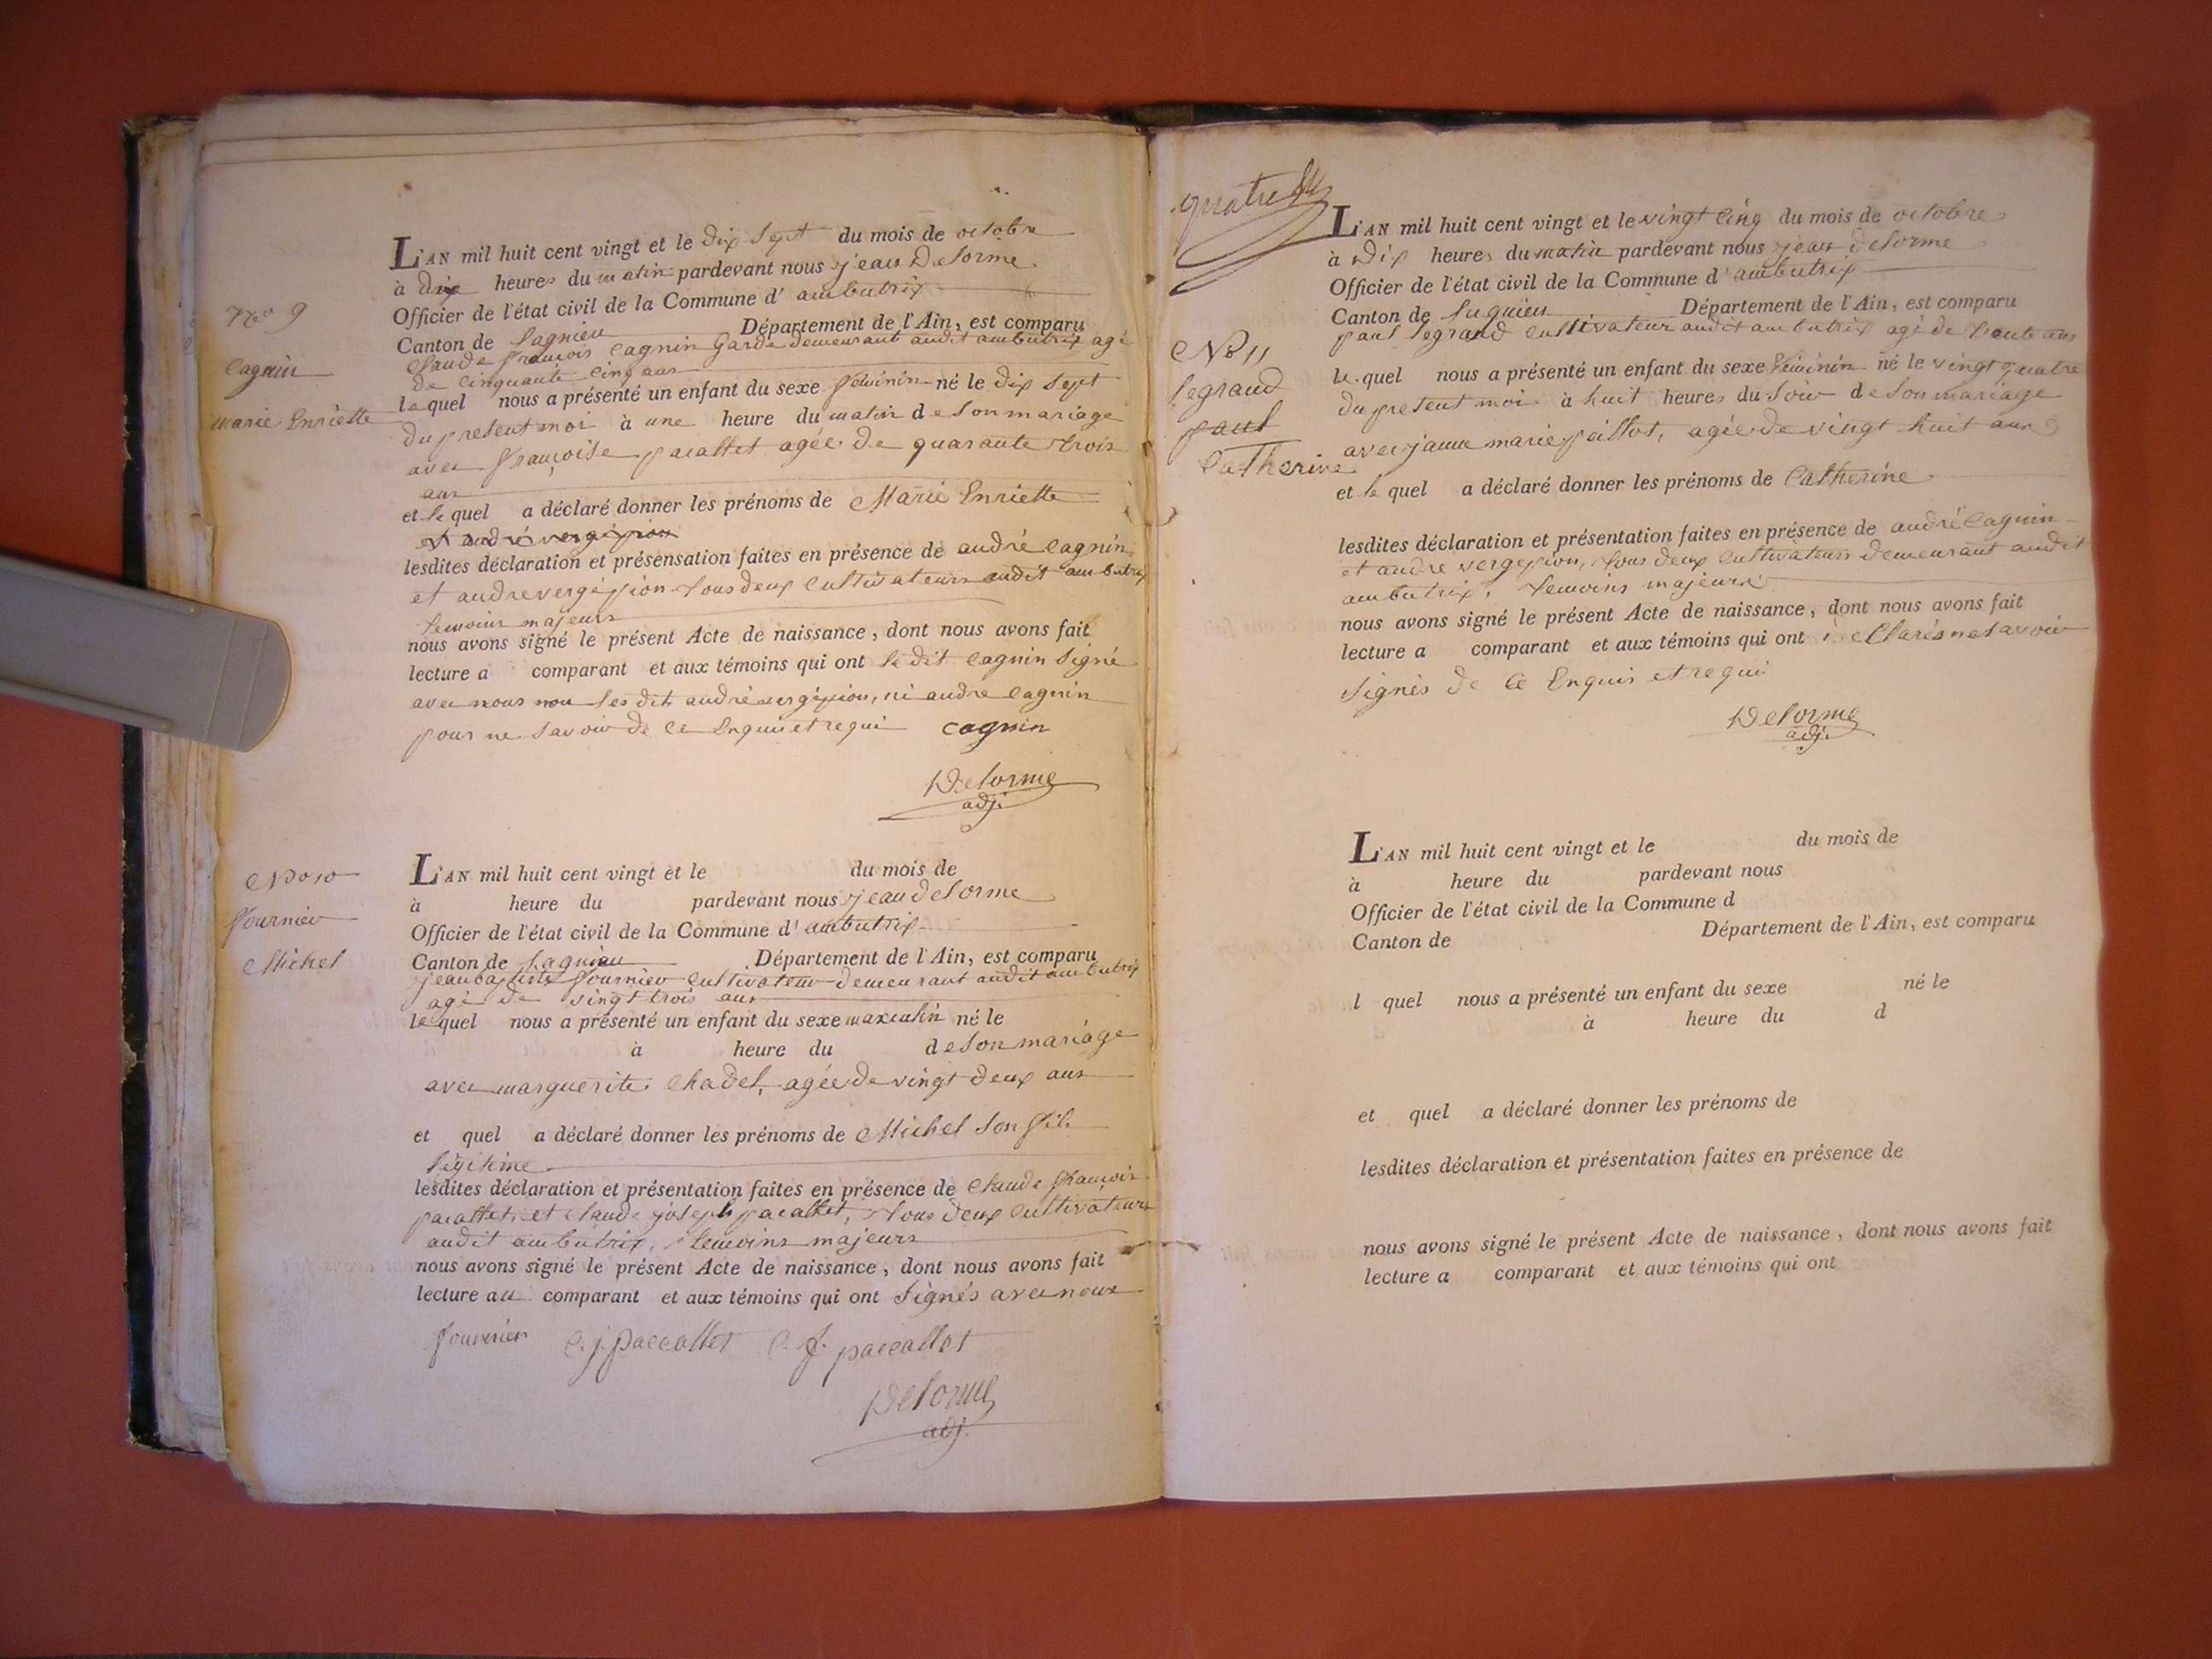 No 9
Cagnin
marie Enriette
L'AN mil huit cent vingt et le dix Sept du mois de octobre
à dix heures du matin pardevant nous jean Delorme
Officier de l'état civil de la Commune d'ambutrix
Canton de Lagnieu Département de l'Ain, est comparu
Claude françois Cagnin Garde demeurant audit ambutrix agé
de Cinquante Cinq ans
lequel nous a présenté un enfant du sexe féminin né le dix Sept
du présent moi à une heure du matin de Son mariage
avec françoise pacallet agée de quarante trois
ans
et le quel a déclaré donner les prénoms de Marie Enriette
et andré vergépion
lesdites déclaration et présensation faites en présence de andré Cagnin
et andre vergépion tous deux Cultivateurs audit ambutrix
temoins majeurs
nous avons signé le présent Acte de naissance, dont nous avons fait
lecture a comparant et aux témoins qui ont le dit Cagnin Signé
avec nous non les dit andré vergépion, ni andre Cagnin
pour ne Savoir de Ce Enquis et requi cagnin
Delorme
adj.
No 10
fournier
Michel
L'AN mil huit cent vingt et le du mois de
à heure du pardevant nous jean delorme
Officier de l'état civil de la Commune d'ambutrix
Canton de Lagnieu Département de l'Ain, est comparu
jean baptiste fournier Cultivateur demeurant audit ambutrix
agé de vingt trois ans
lequel nous a présenté un enfant du sexe maxculin né le
à heure du de Son mariage
avec marguerite Chadel, agée de vingt deux ans
et quel a déclaré donner les prénoms de Michel Son fils
légitime
lesdites déclaration et présentation faites en présence de Claude françois
pacallet, et Claude joseph pacallet, tous deux Cultivateurs
audit ambutrix, temoins majeurs
nous avons signé le présent Acte de naissance, dont nous avons fait
lecture au comparant et aux témoins qui ont Signés avec nous
fournier C. j. paccallet C. f. paccallet
Delorme
adj.
quatre
No 11
legrand
paul
Catherine
L'AN mil huit cent vingt et le vingt Cinq du mois de octobre
à Dix heures du matin pardevant nous jean delorme
Officier de l'état civil de la Commune d'ambutrix
Canton de Lagnieu Département de l'Ain, est comparu
paul legrand Cultivateur audit ambutrix agé de trente ans
le quel nous a présenté un enfant du sexe féminin né le vingt quatre
du présent moi à huit heures du Soir de Son mariage
avec janne marie paillot, agée de vingt huit ans
et le quel a déclaré donner les prénoms de Catherine
lesdites déclaration et présentation faites en présence de andré Cagnin
et andre vergépion, tous deux Cultivateurs demeurant audit
ambutrix, temoins majeurs
nous avons signé le présent Acte de naissance, dont nous avons fait
lecture a comparant et aux témoins qui ont déclarés ne Savoir
Signés de Ce Enquis et requi
Delorme
adj.
L'AN mil huit cent vingt et le du mois de
à heure du pardevant nous
Officier de l'état civil de la Commune d
Canton de Département de l'Ain, est comparu
l quel nous a présenté un enfant du sexe né le
à heure du d
et quel a déclaré donner les prénoms de
lesdites déclaration et présentation faites en présence de
nous avons signé le présent Acte de naissance, dont nous avons fait
lecture a comparant et aux témoins qui ont